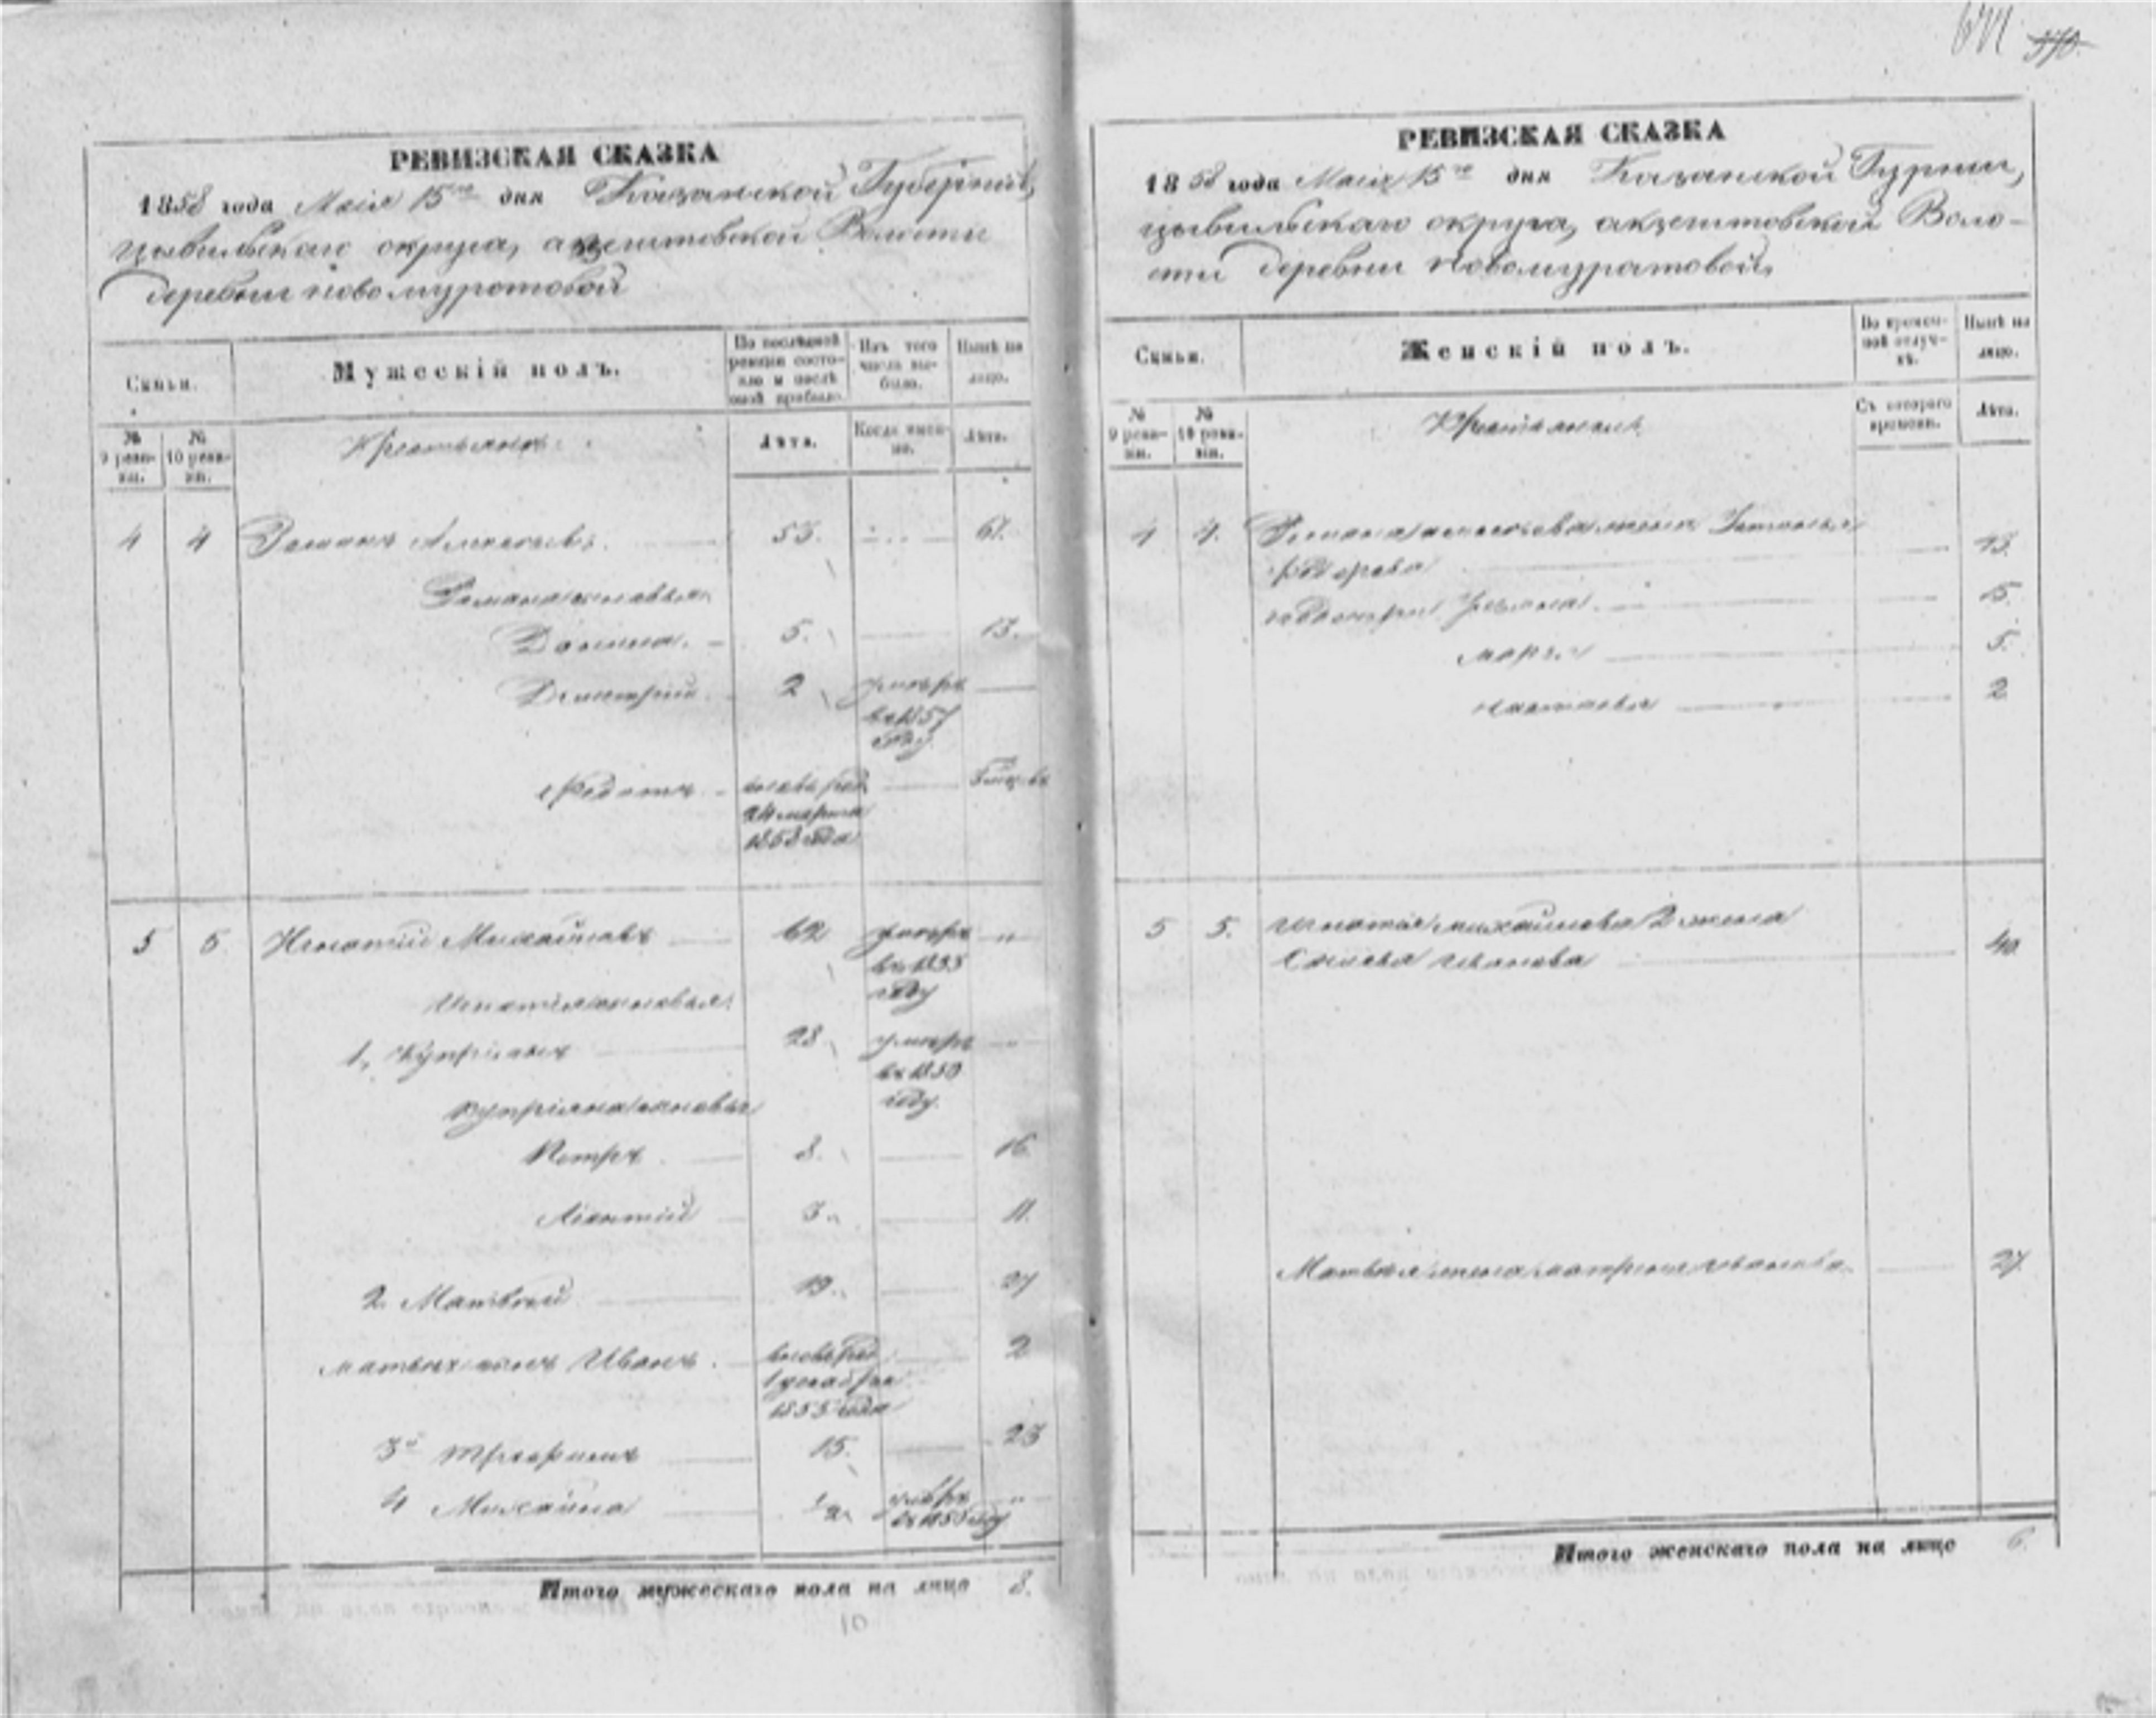 641 570.
РЕВИЗСКАЯ СКАЗКА
1858 года Маія 15го дня Казанской Губерніи,
цывильскаго округа, акзегитовской Волости
деревни новомуратовой
Семьи.
Мужескій полъ.
По послѣдней ревизіи состояло и послѣ оной прибыло.
Изъ того числа выбыло.
Нынѣ на лицо.
№ 9 ревизіи.
№ 10 ревизіи.
Крестьяне
Лѣта.
Когда именно.
Лѣта.
4 4 Романъ Алексѣевъ. 53. 61.
Романа сыновья
Данила. 5. 13.
Дмитрій 2 умеръ
въ 1857
году
Федотъ вновь рож.
24 марта
1858 года
5 5 Игнатій Михайловъ 62 умеръ "
въ 1855
году
Игнатія сыновья
1, Купріянъ 28 умеръ
въ 1850
году.
Купріяна сыновья
Петръ 8. 16
Леонтій 3. 11.
2. Матвѣй 19. 27
Матвѣя сынъ Иванъ. вновь рож. 2
1 декабря
1855 года
3й Григорій 15. 23
4 Михайла 1/2 умеръ "
въ 1850 году
Итого мужескаго пола на лицо 8.
10
РЕВИЗСКАЯ СКАЗКА
1858 года Маія 15го дня Казанской Губрніи,
цывильскаго округа, акзегитовской Воло-
сти деревни Новомуратовой,
Семьи.
Женскій полъ.
Во временной отлучкѣ.
Нынѣ на лицо.
№ 9 ревизіи.
№ 10 ревизіи.
Крестьянки
Съ котораго времени.
Лѣта.
4 4. Романа Алексѣева жена Татьяна
Федорова 43.
15.
Марья 5.
Настасья 2
5 5. Игнатія Михайлова 2 жена
Иванова 40.
Матвѣя жена Матрена Иванова 27.
Итого женскаго пола на лицо 6.